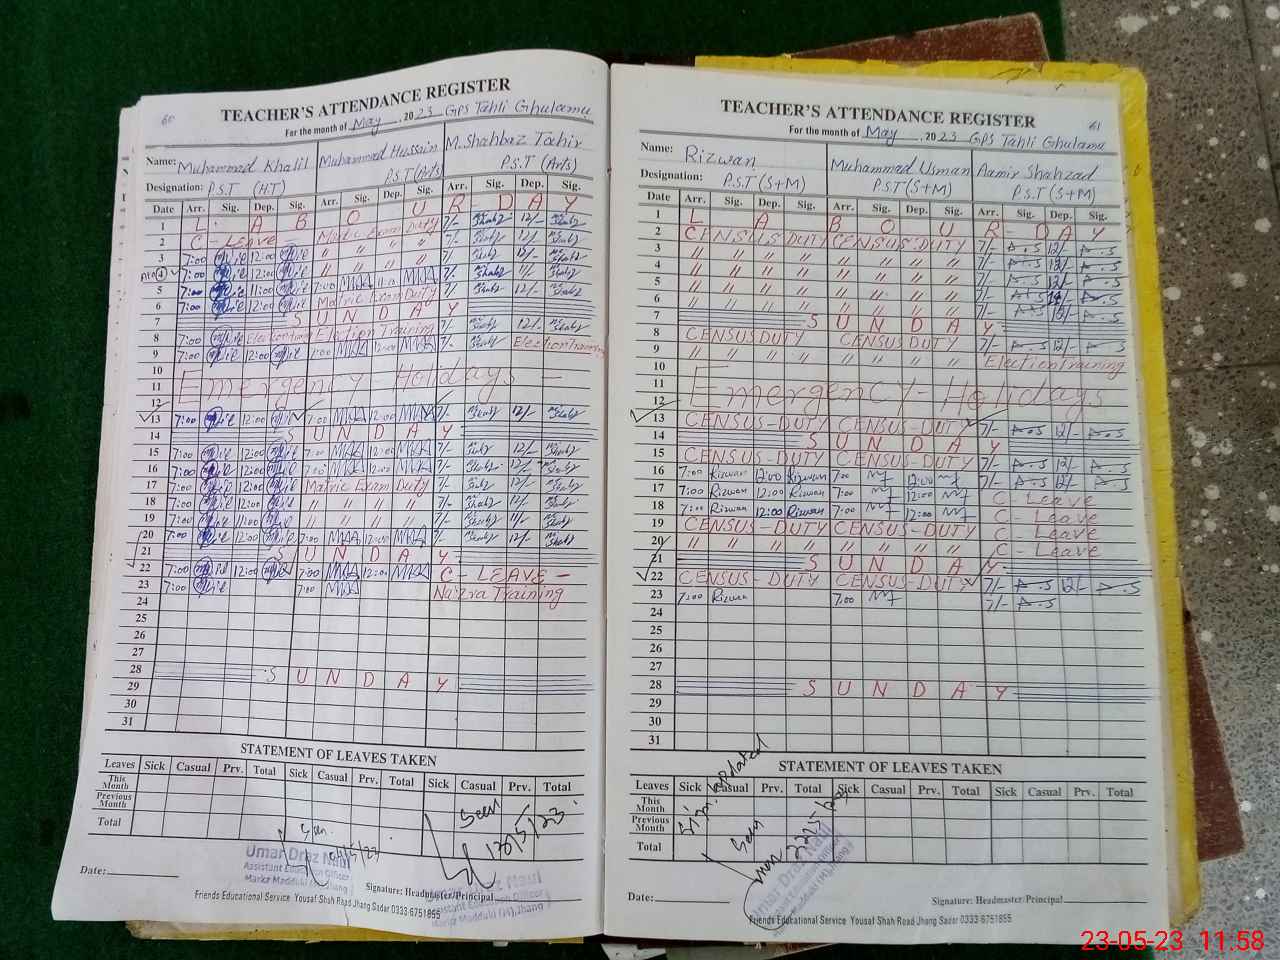 60
TEACHER'S ATTENDANCE REGISTER
For the month of May, 2023 GPS Tahli Ghulamu
Name: Muhammad Khalil Muhammad Hussain M. Shahbaz Tahir
Designation: P.S.T (H.T) P.S.T (Arts) P.S.T (Arts)
Date Arr. Sig. Dep. Sig. Arr. Sig. Dep. Sig. Arr. Sig. Dep. Sig.
1 L A B O U R - D A Y
2 C - Leave Matric Exam Duty 7/- Shahz 12/- Shahz
3 7:00 12:00 〃 〃 〃 7/- Shahz 12/- Shahz
4 7:00 12:00 〃 〃 〃 7/- Shahz 12/- Shahz
5 7:00 11:00 7:00 11:00 7/- Shahz 11/- Shahz
6 7:00 12:00 Matric Exam Duty 7/- Shahz 12/- Shahz
7 S U N D A Y
8 7:00 Election Training Election Training 7/- Shahz 12/- Shahz
9 7:00 12:00 7:00 12:00 7/- Shahz Election Training
10
11 Emergency - Holidays -
12
13 7:00 12:00 7:00 12:00 7/- Shahz 12/- Shahz
14 S U N D A Y
15 7:00 12:00 7:00 12:00 7/- Shahz 12/- Shahz
16 7:00 12:00 7:00 12:00 7/- Shahz 12/- Shahz
17 7:00 12:00 Matric Exam Duty 7/- Shahz 12/- Shahz
18 7:00 12:00 〃 〃 〃 7/- Shahz 12/- Shahz
19 7:00 11:00 〃 〃 〃 7/- Shahz 11/- Shahz
20 7:00 12:00 7:00 12:00 7/- Shahz 12/- Shahz
21 S U N D A Y
22 7:00 12:00 7:00 12:00 C - LEAVE -
23 7:00 7:00 Nazra Training
24
25
26
27
28 S U N D A Y
29
30
31
STATEMENT OF LEAVES TAKEN
Leaves Sick Casual Prv. Total Sick Casual Prv. Total Sick Casual Prv. Total
This Month
Previous Month
Total
Seen
Seen
17/5/23
Umar Draz Naul
Assistant Education Officer
Markz Madduki (M) Jhang
Assistant Education Officer
Markz Madduki (M) Jhang
Date:
Signature: Headmaster/Principal
Friends Educational Service Yousaf Shah Road Jhang Sadar 0333-6751855
61
TEACHER'S ATTENDANCE REGISTER
For the month of May, 2023 GPS Tahli Ghulamu
Name: Rizwan Muhammad Usman Aamir Shahzad
Designation: P.S.T (S+M) P.S.T (S+M) P.S.T (S+M)
Date Arr. Sig. Dep. Sig. Arr. Sig. Dep. Sig. Arr. Sig. Dep. Sig.
1 L A B O U R - D A Y
2 CENSUS DUTY CENSUS DUTY 7/- A.S 12/- A.S
3 〃 〃 〃 〃 〃 〃 〃 〃 7/- A.S 12/- A.S
4 〃 〃 〃 〃 〃 〃 〃 〃 7/- A.S 12/- A.S
5 〃 〃 〃 〃 〃 〃 〃 〃 7/- A.S A.S
6 〃 〃 〃 〃 〃 〃 〃 〃 7/- A.S 12/- A.S
7 S U N D A Y
8 CENSUS DUTY CENSUS DUTY 7/- A.S 12/- A.S
9 〃 〃 〃 〃 〃 〃 〃 〃 Election Training
10
11 Emergency - Holidays
12
13 CENSUS-DUTY CENSUS-DUTY 7/- A.S 12/- A.S
14 S U N D A Y
15 CENSUS-DUTY CENSUS-DUTY 7/- A.S 12/- A.S
16 7:00 Rizwan 12:00 Rizwan 7:00 12:00 7/- A.S 12/- A.S
17 7:00 Rizwan 12:00 Rizwan 7:00 12:00 C - Leave
18 7:00 Rizwan 12:00 Rizwan 7:00 12:00 C - Leave
19 CENSUS-DUTY CENSUS-DUTY C - Leave
20 〃 〃 〃 〃 〃 〃 〃 〃 C - Leave
21 S U N D A Y
22 CENSUS-DUTY CENSUS-DUTY 7/- A.S 12/- A.S
23 7:00 Rizwan 7:00 7/- A.S
24
25
26
27
28 S U N D A Y
29
30
31
STATEMENT OF LEAVES TAKEN
Leaves Sick Casual Prv. Total Sick Casual Prv. Total Sick Casual Prv. Total
This Month
Previous Month
Total
updated
Seen
Date:
Signature: Headmaster/Principal
Friends Educational Service Yousaf Shah Road Jhang Sadar 0333-6751855
23-05-23 11:58